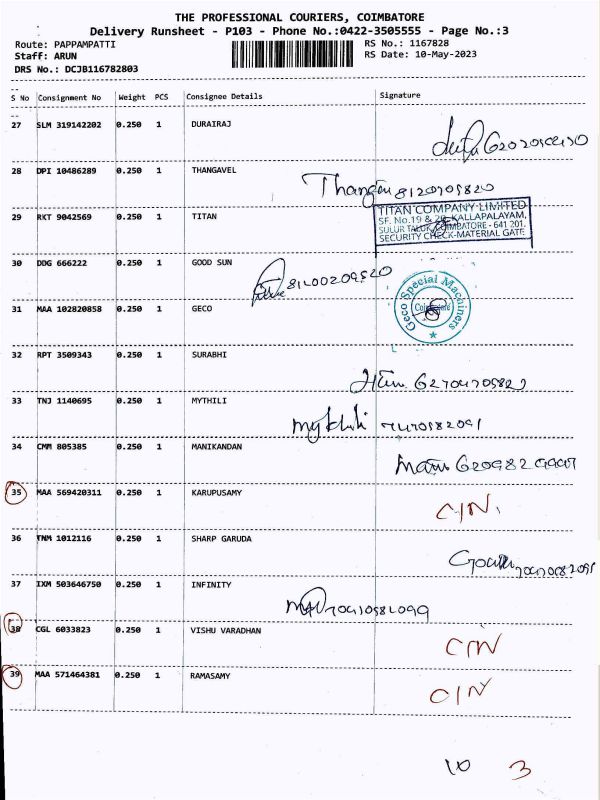 THE PROFESSIONAL COURIERS, COIMBATORE
Delivery Runsheet - P103 - Phone No.:0422-3505555 - Page No.:3
Route: PAPPAMPATTI RS No.: 1167828
Staff: ARUN RS Date: 10-May-2023
DRS No.: DCJB116782803
S No Consignment No Weight PCS Consignee Details Signature
27 SLM 319142202 0.250 1 DURAIRAJ
28 DPI 10486289 0.250 1 THANGAVEL
29 RKT 9042569 0.250 1 TITAN
TITAN COMPANY LIMITED
SF. No.19 & 20, KALLAPALAYAM,
SULUR TALUK, COIMBATORE - 641 201.
SECURITY CHECK-MATERIAL GATE.
30 DDG 666222 0.250 1 GOOD SUN
31 MAA 102820858 0.250 1 GECO
Geco Special Machiners
32 RPT 3509343 0.250 1 SURABHI
33 TNJ 1140695 0.250 1 MYTHILI
Mythili
34 CMM 805385 0.250 1 MANIKANDAN
35 MAA 569420311 0.250 1 KARUPUSAMY C/N
36 TNM 1012116 0.250 1 SHARP GARUDA
37 IXM 503646750 0.250 1 INFINITY
38 CGL 6033823 0.250 1 VISHU VARADHAN C/N
39 MAA 571464381 0.250 1 RAMASAMY C/N
10 3